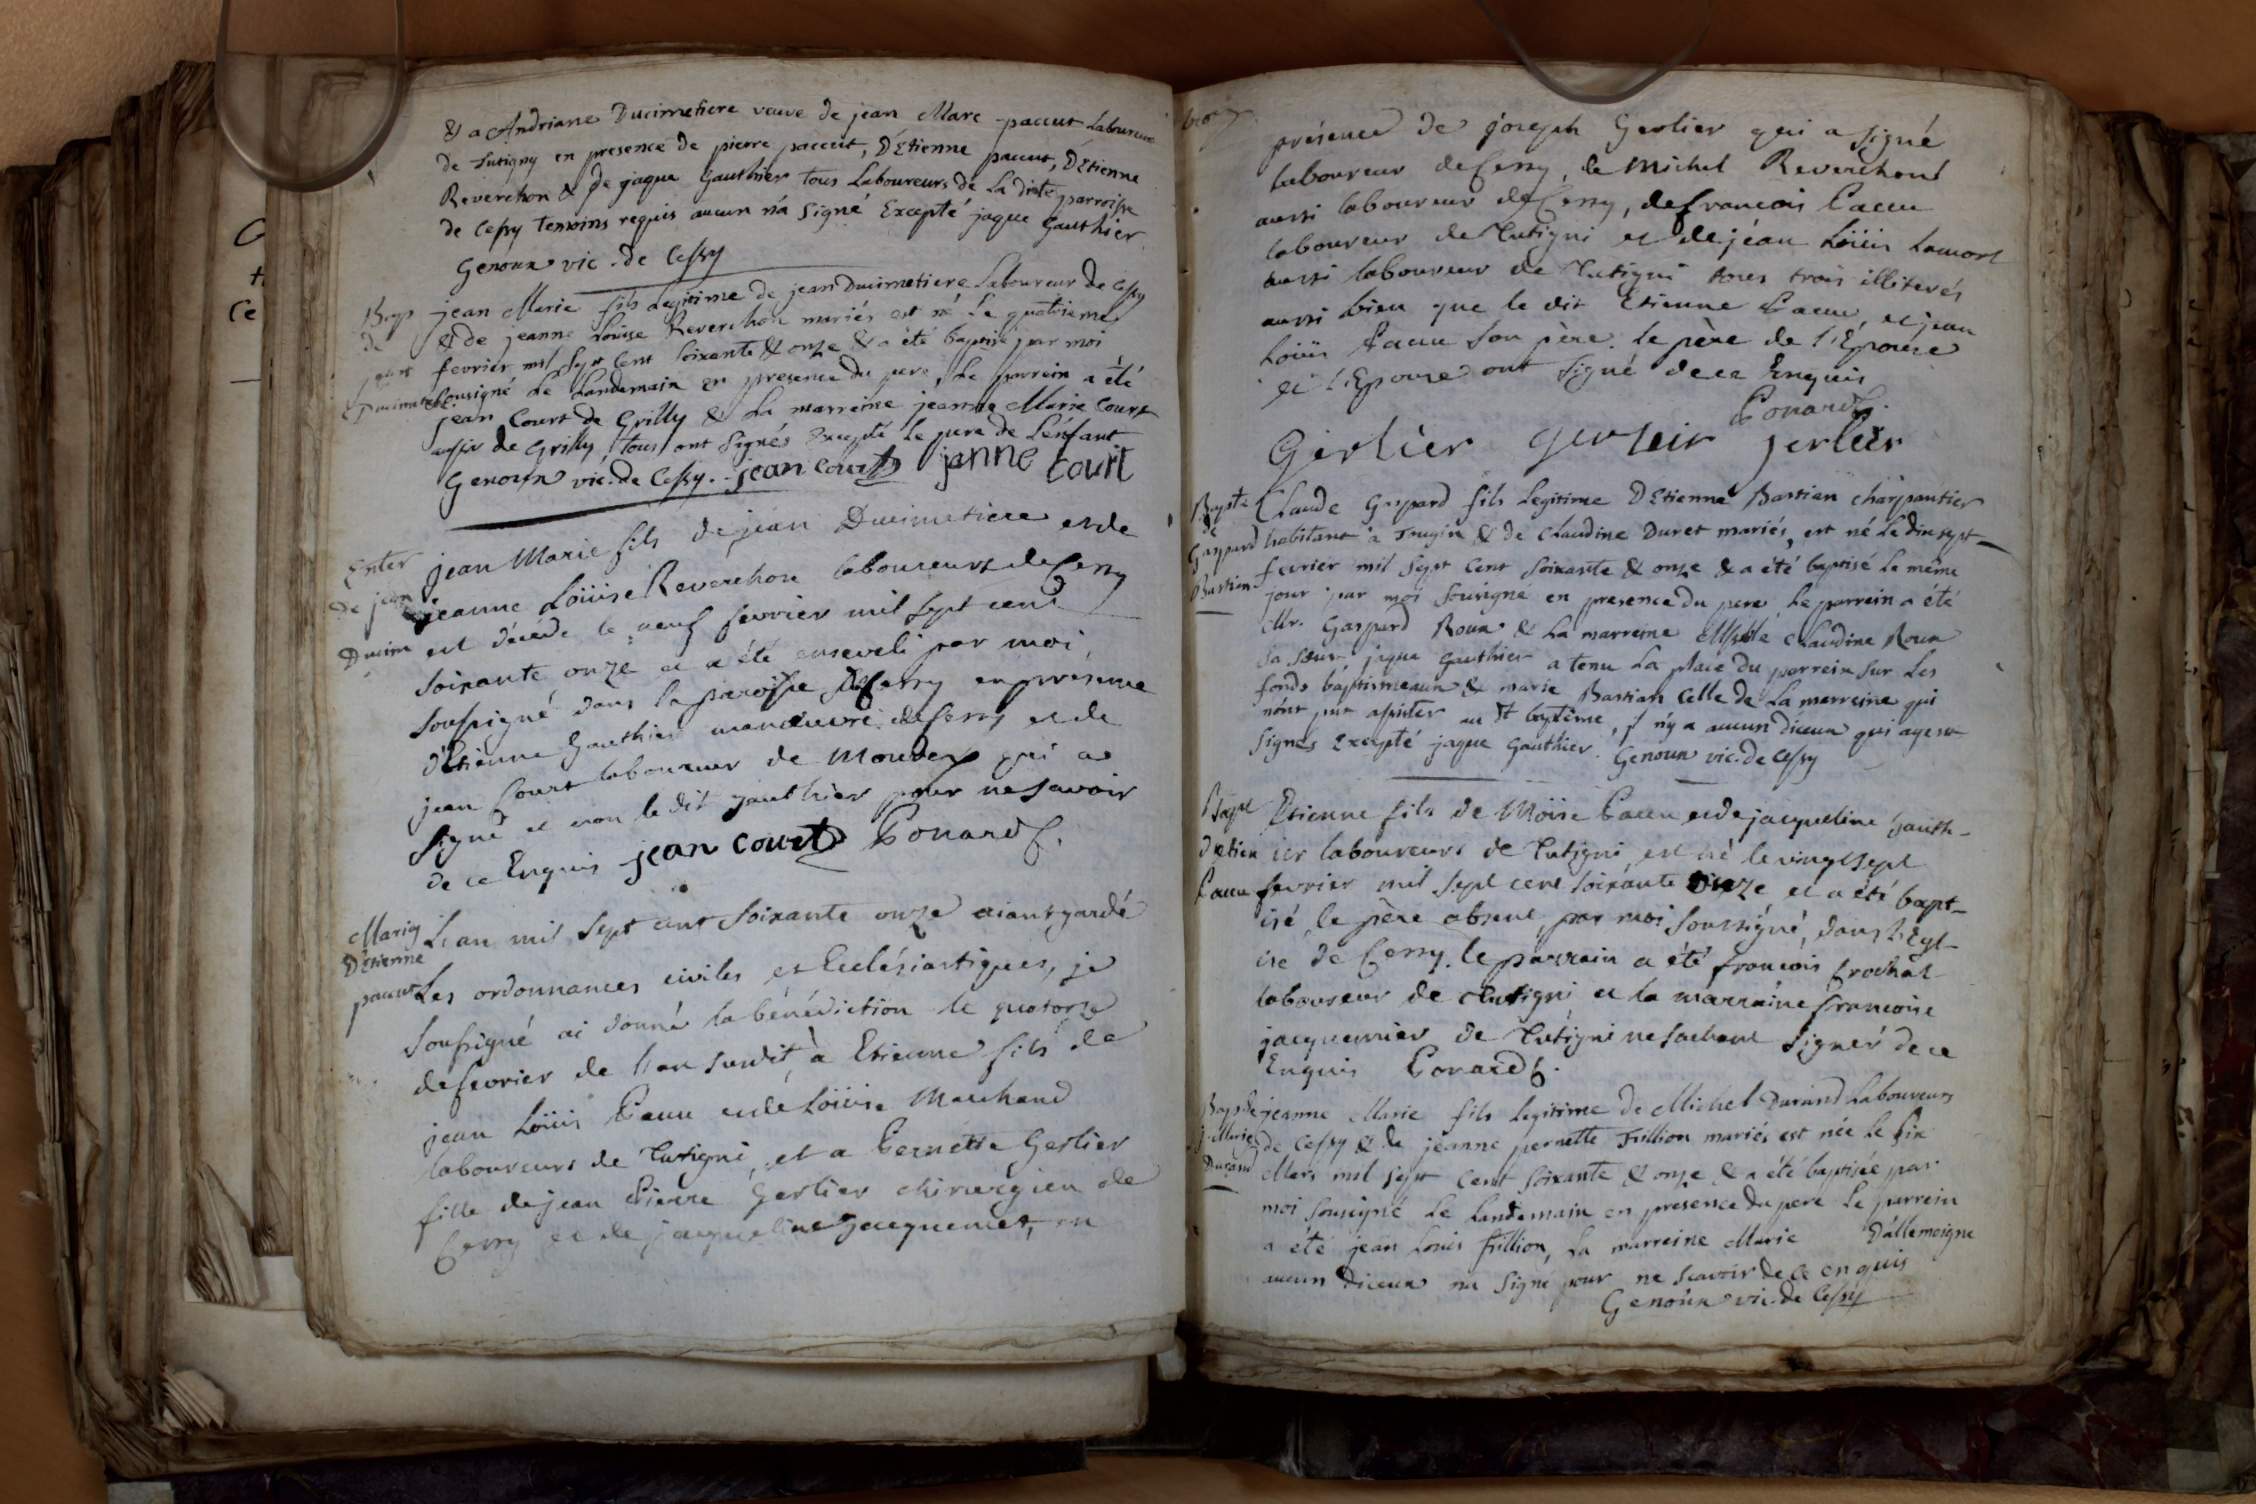 & a Andriane Ducimetiere veuve de jean Marc paccut Laboureur
de Tutigny en presence de pierre paccut, D'Etienne paccut, D'Etienne
Reverchon & de jaque Gauthier tous Laboureurs de La dite parroisse
de Cessy temoins requis aucun n'a Signé Excepté jaque Gauthier
Genoux vic. de Cessy
Bap jean Marie fils Legitime de jean Ducimetiere Laboureur de Cessy
de & de jeanne Louise Reverchon mariés est né Le quatrieme
jean fevrier mil Sept Cent Soixante & onze & a été baptisé par moi
Ducimetiere Sousigné Le Landemain en presence du pere, Le parrein a été
jean Court de Grilly & La marreine jeanne Marie Court
aussi de Grilly, tous ont Signés Excepté Le pere de L'enfant
Genoux vic. de Cessy. jean court janne court
Enter jean Marie fils de jean Ducimetiere et de
de jean jeanne Loüise Reverchon laboureurs de Cessy
Ducim est décédé le neuf fevrier mil sept cent
soixante onze et a été enseveli par moi
soussigné dans la paroisse de Cessy en présence
d'Etienne Gauthier manœuvre de Cessy et de
jean Court laboureur de Mondex qui a
signé et non le dit gauthier pour ne savoir
de ce Enquis jean court Ponard C.
Mariag L'an mil sept cent soixante onze aiant gardé
D'Etienne
paccut Les ordonnances civiles et Ecclésiastiques, je
soussigné ai donné la bénédiction le quatorze
de fevrier de l'an susdit, à Etienne fils de
jean Loüis Pacu et de Loüise Marchand
laboureurs de Tutigni, et a Pernette Gerlier
fille de jean Pierre Gerlier chirurgien de
Cessy et de jacqueline jacquemet, en
présence de joseph Gerlier qui a signé
laboureur de Cessy, de Michel Reverchont
aussi laboureur de Cessy, de francois Pacu
laboureur de Tutigni et de jéan Loüis Lamort
aussi laboureur de Tutigni tous trois illiterés
aussi bien que le dit Etienne Pacu, et jean
Loüis Pacu son père. le père de l'Epouse
et l'Epouse ont signé de ce Enquis
Ponard C.
Gerlier gerleir jerleir
Bapte Claude Gaspard fils Legitime D'Etienne Bastian charpantier
de
Gaspard habitant a Tougin & de Claudine Duret mariés, est né Le dix sept
Bastian fevrier mil Sept Cent Soixante & onze & a été baptisé Le même
jour par moi Sousigné en presence du pere Le parrein a été
Mr. Gaspard Roux & La marreine Mselle Claudine Roux
Sa sœur jaque Gauthier a tenu La place du parrein sur Les
fonds baptismeaux & marie Bastian Celle de La marreine qui
n'ont put assister au St baptême, il n'y a aucun diceux qui ayent
Signés Excepté jaque Gauthier. Genoux vic. de Cessy
Bapt Etienne fils de Möise Pacu et de jacqueline Gauth-
d'etien ier laboureurs de Tutigni est né le vingt sept
Pacu fevrier mil sept cent soixante onze et a été bapt-
isé, le père absent, par moi soussigné, dans l'Egl-
ise de Cessy. le parrain a été francois Crochat
laboureur de Tutigni et la marraine francoise
jacquemier de Tutigni ne sachant signér de ce
Enquis Ponard C.
Bapt de jeanne Marie fils Legitime de Michel Durand Laboureurs
j. Marie de Cessy & de jeanne pernette Frillion mariés est née Le six
Durand Mars mil Sept Cent Soixante & onze & a été baptisée par
moi Sousigné Le Landemain en presence du pere Le parrein
a été jean Louis frillion, La marreine Marie Dallemoigne
aucun diceux na Signé pour ne Scavoir de ce enquis
Genoux vic. de Cessy